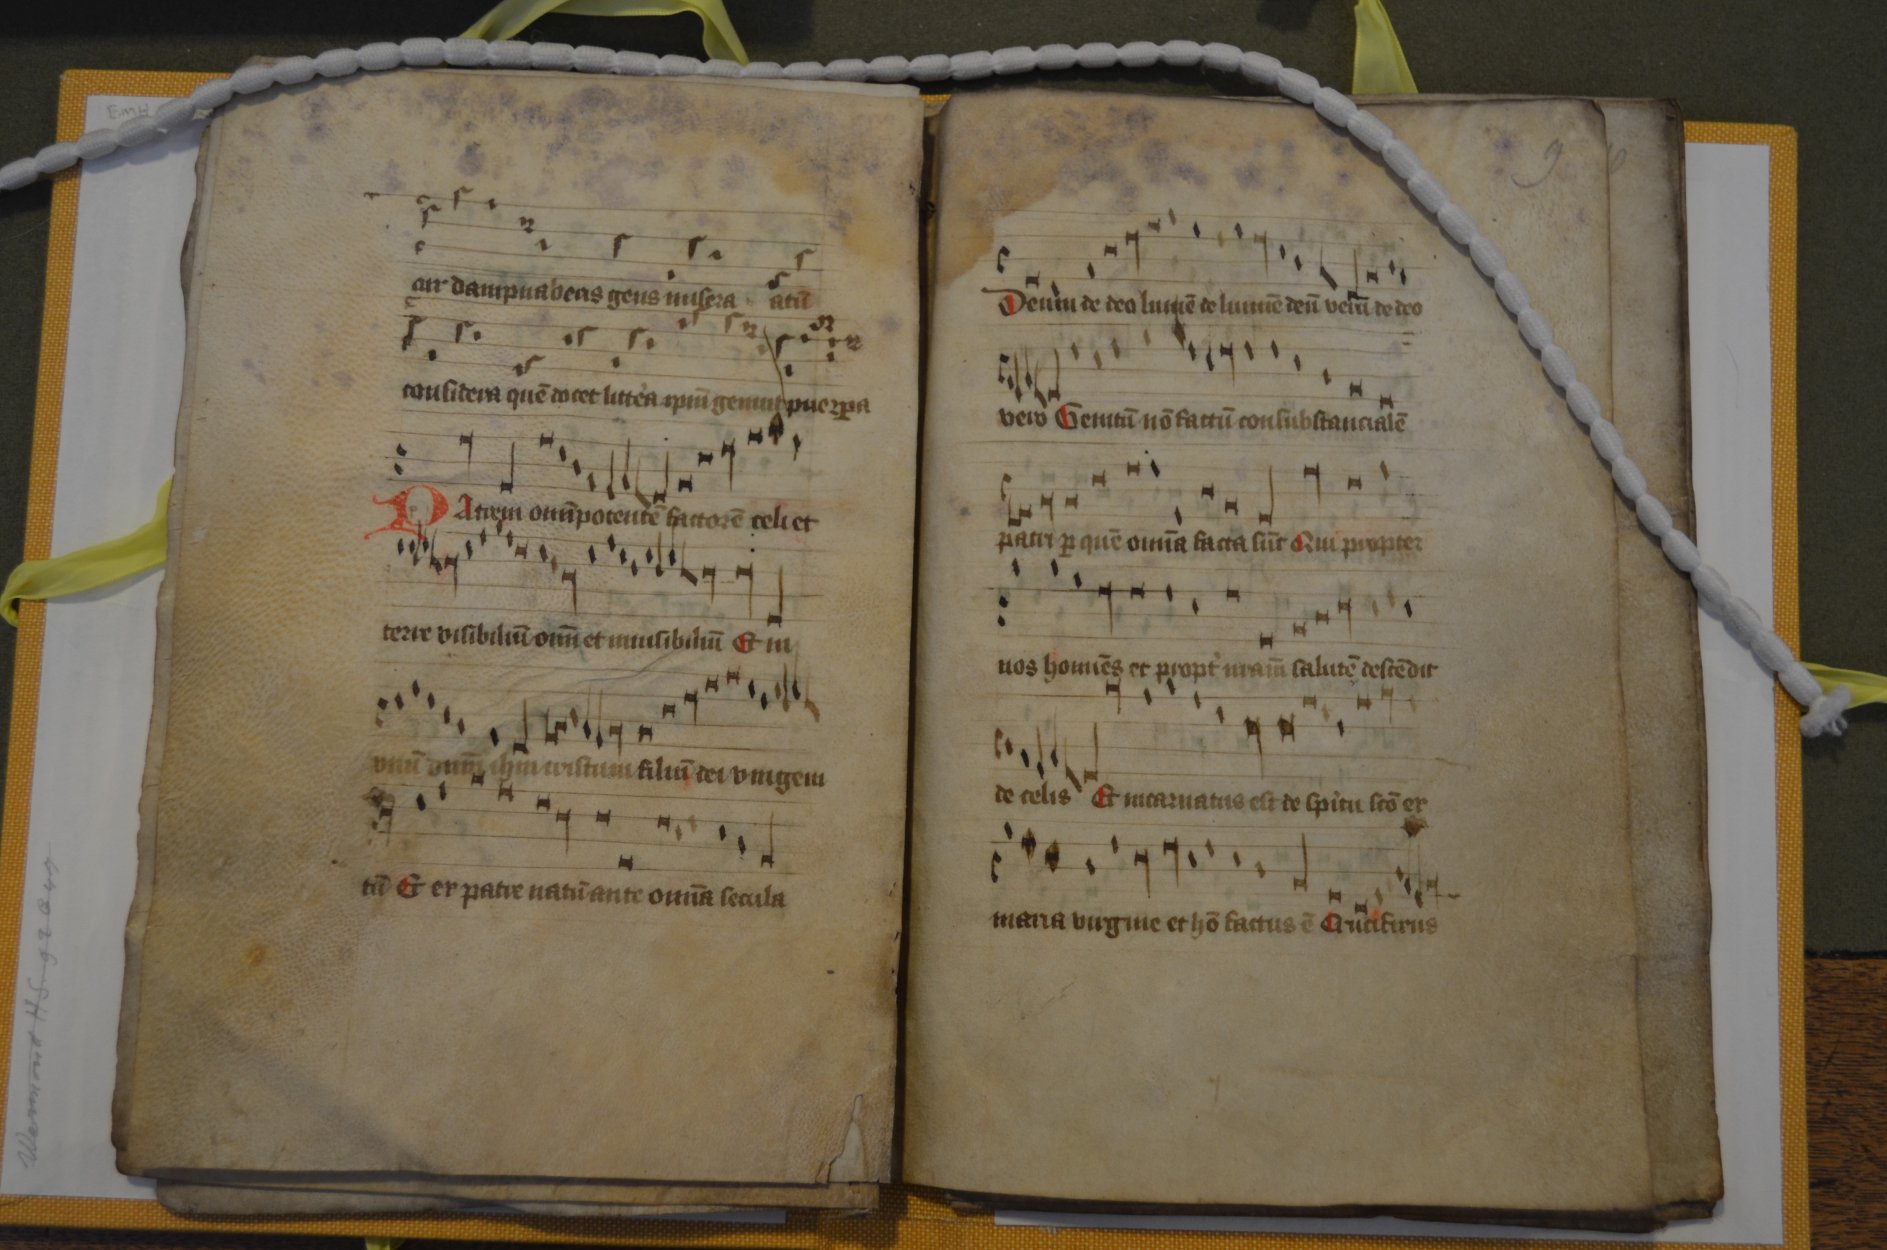 cur dampnaberis gens misera
considera quē docet littera ip̄m genuit puerpera
PAtrem omīpotentē factorē celi et
terre visibiliū om̄ et inuisibiliū Et in
vnū dn̄m ih̄m cristum filiū dei vnigeni
tū Et ex patre natū ante om̄ia secula
Deum de deo lumē de lumīe deū verū de deo
vero Genitū nō factū consubstancialē
patri ꝑ quē om̄ia facta sūt Qui propter
nos homīēs et propt̓ nr̄am salutē descēdit
de celis Et incarnatus est de sp̄itu sc̄o ex
maria virgine et hō factus ē Crucifixus